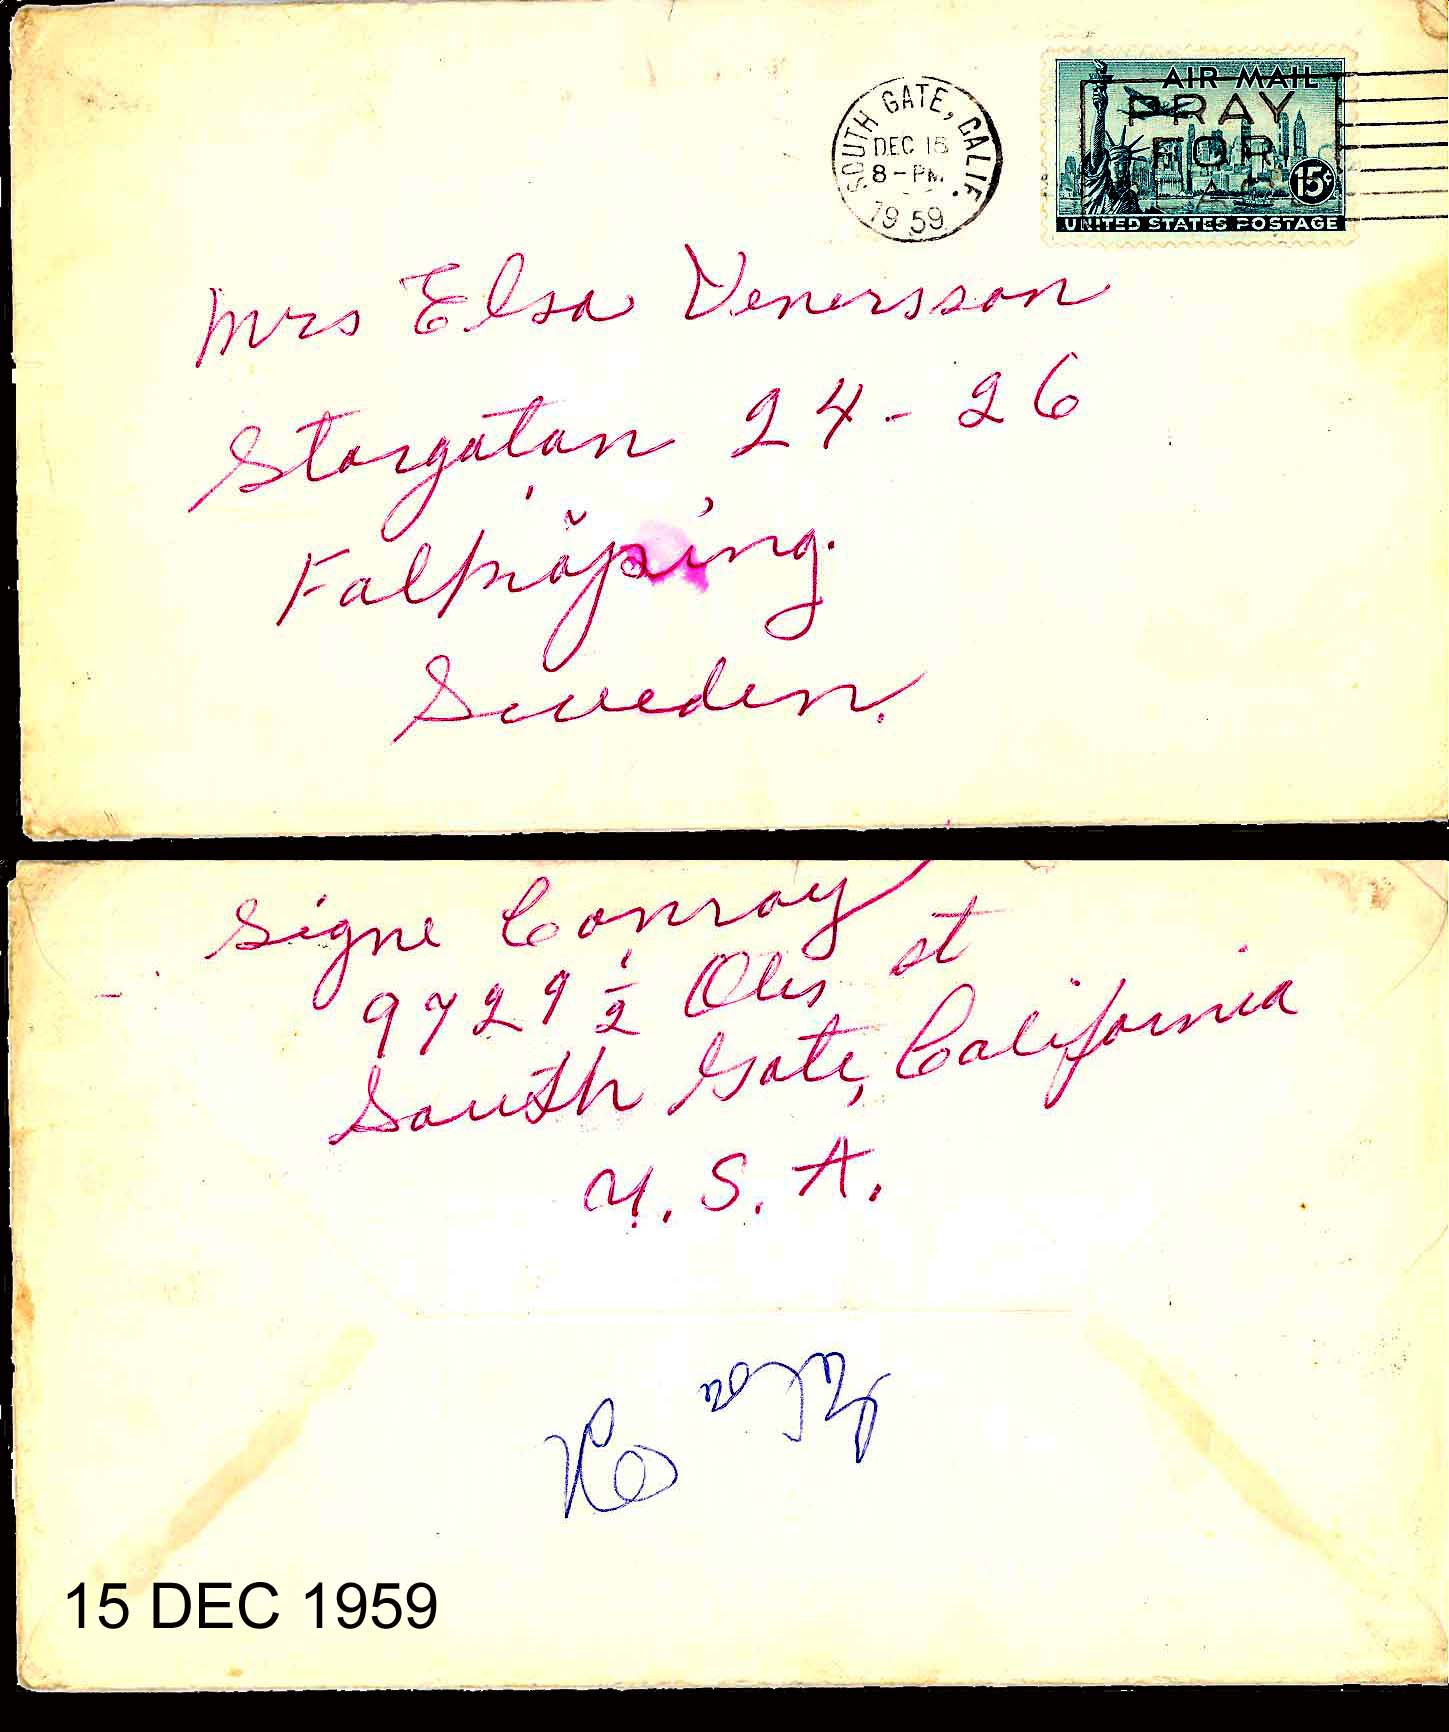 SOUTH GATE, CALIF.
DEC 15
8-PM
1959
AIR MAIL
PRAY
FOR
15¢
UNITED STATES POSTAGE
Mrs Elsa Venersson
Storgatan 24-26
Falköping.
Sweden.
Signe Conray
9729 1/2 Otis st
South Gate, California
U.S.A.
15 DEC 1959